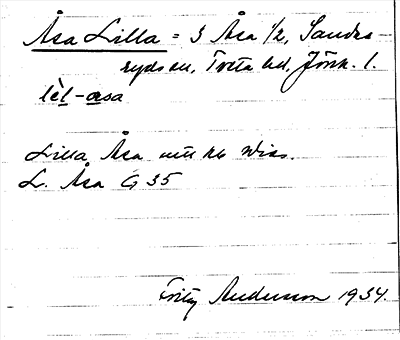 Åsa Lilla = 3 Åsa 1/2, Sandse-
ryds sn, Tveta hd, Jönk. l.
lèl-åsa
Lilla Åsa
L. Åsa G 35
Fritz Anderson 1934.